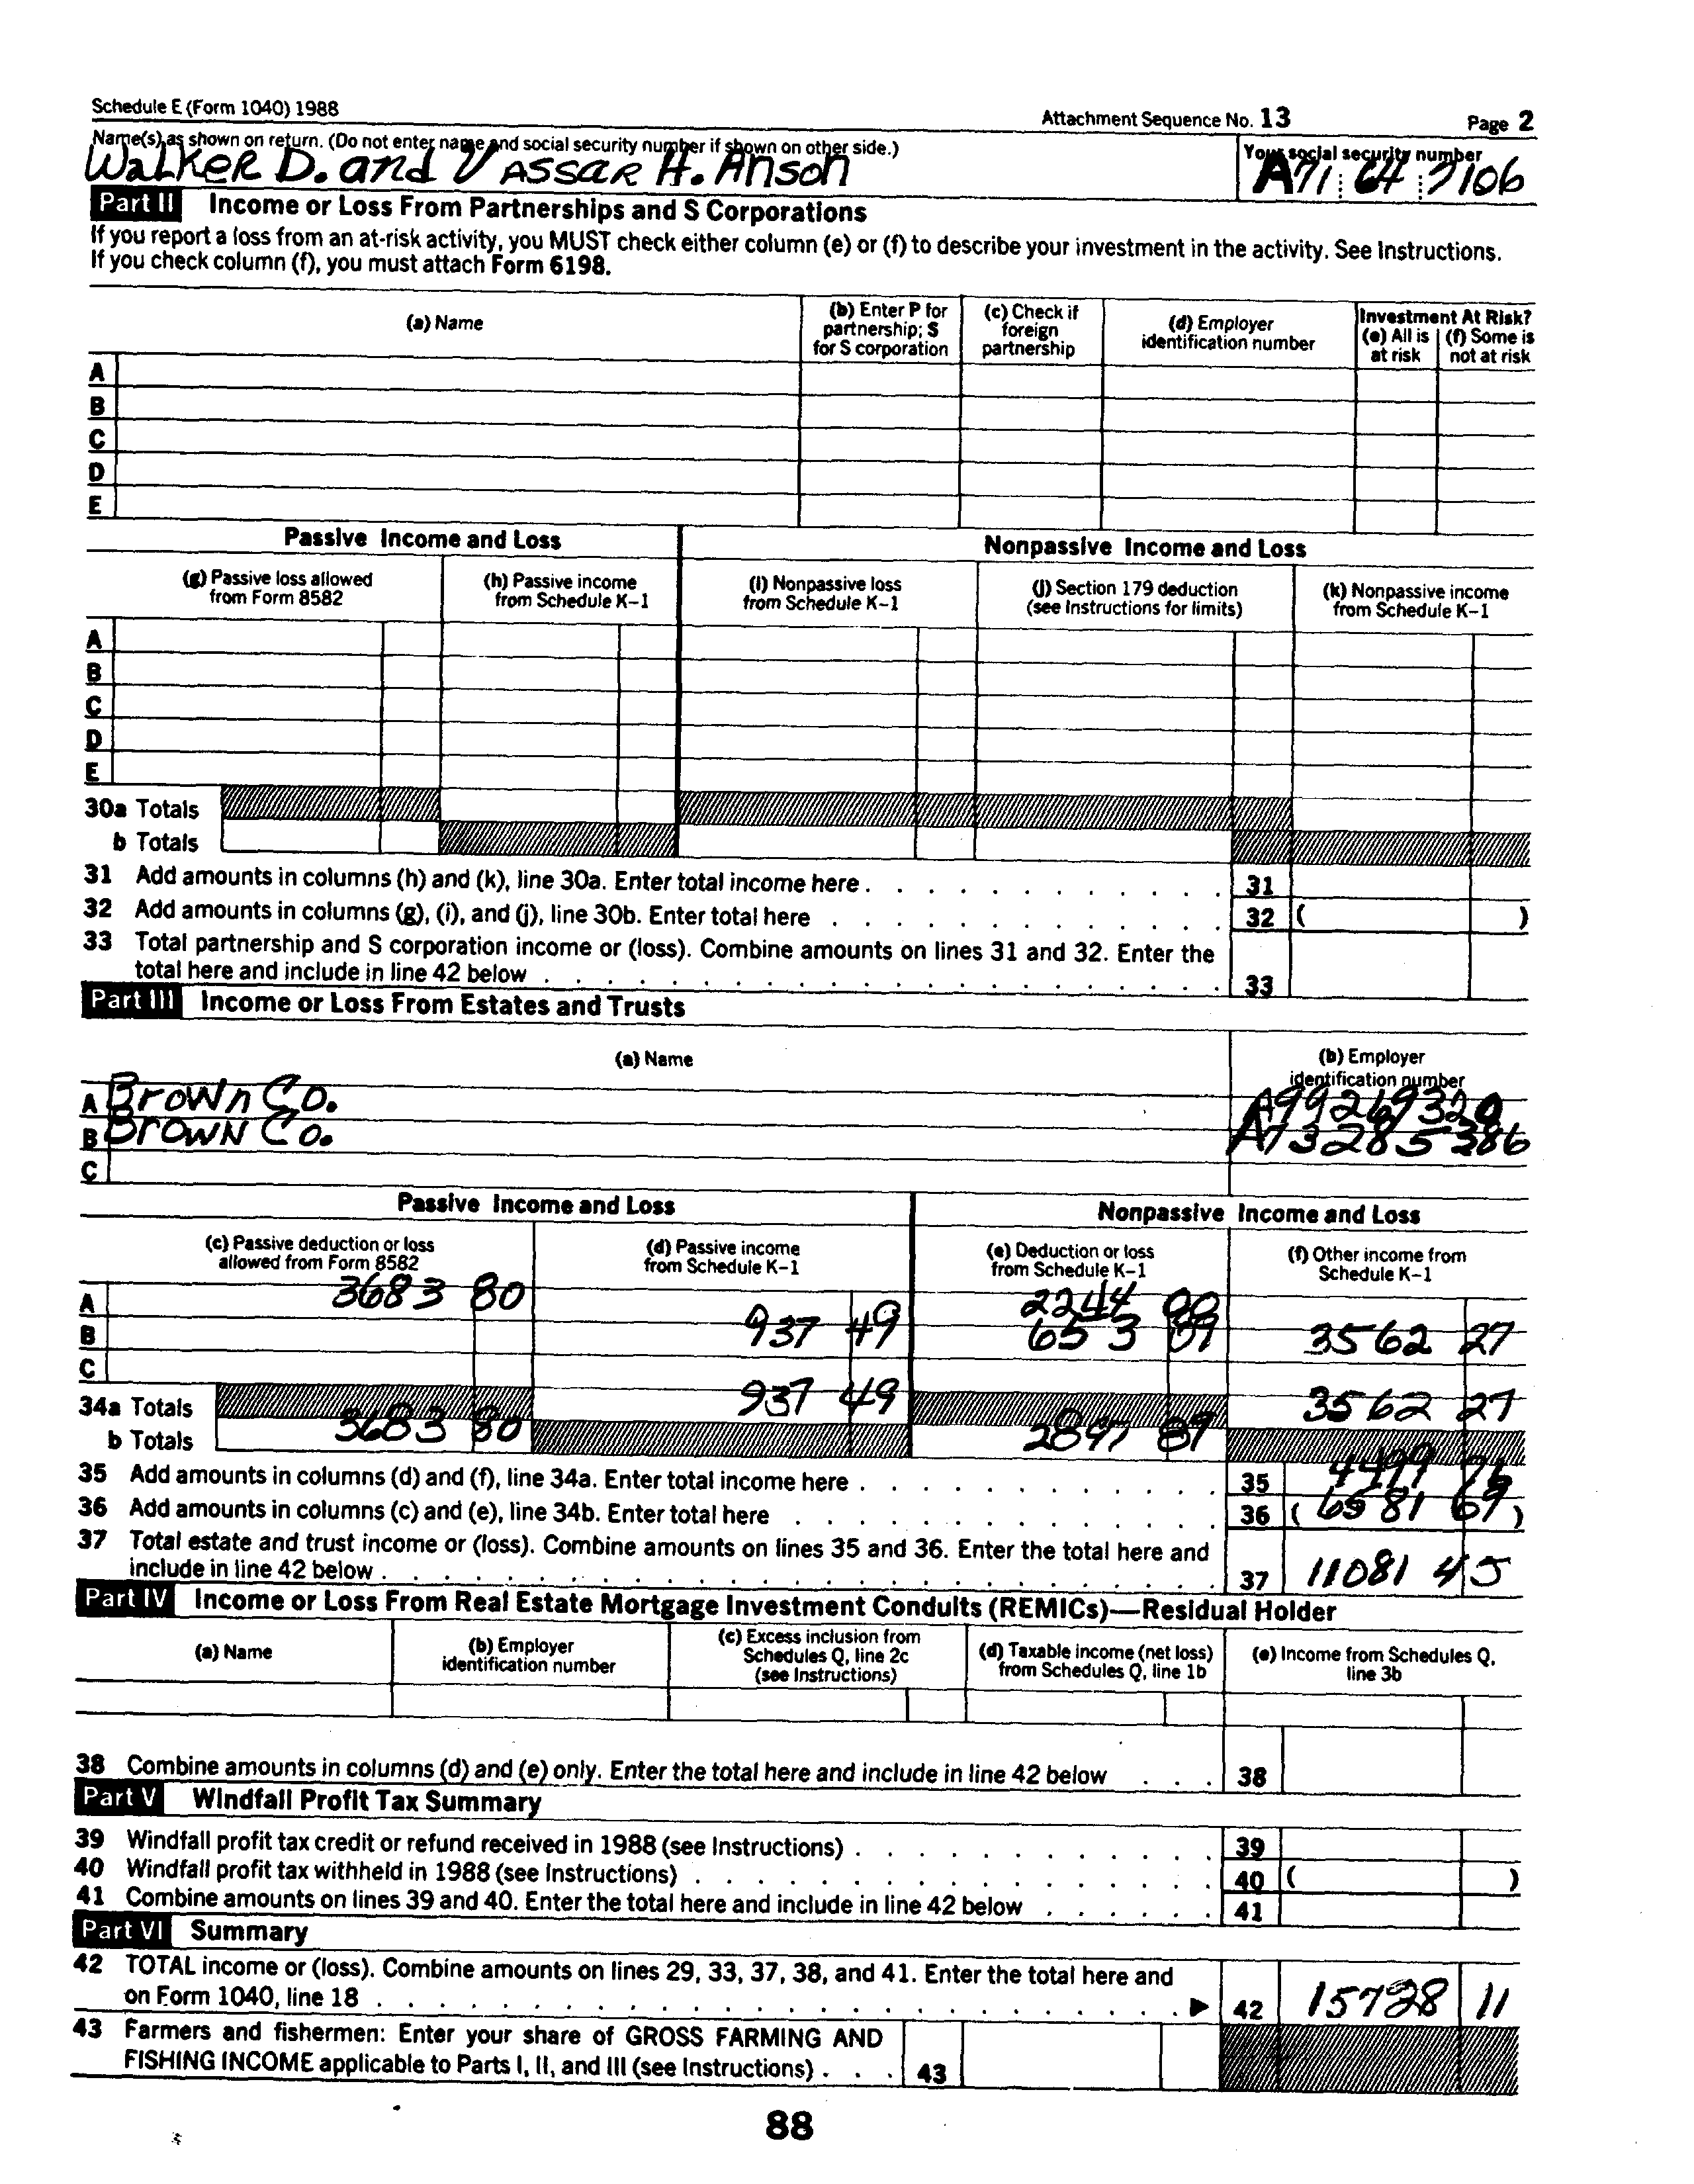 Schedule E (Form 1040) 1988 Attachment Sequence No. 13 Page 2
Name(s) as shown on return. (Do not enter name and social security number if shown on other side.) Your social security number
Walker D. and Vassar H. Anson A71 64 7106
Part II Income or Loss From Partnerships and S Corporations
If you report a loss from an at-risk activity, you MUST check either column (e) or (f) to describe your investment in the activity. See Instructions.
If you check column (f), you must attach Form 6198.
(a) Name (b) Enter P for partnership; S for S corporation (c) Check if foreign partnership (d) Employer identification number Investment At Risk? (e) All is at risk (f) Some is not at risk
A
B
C
D
E
Passive Income and Loss Nonpassive Income and Loss
(g) Passive loss allowed from Form 8582 (h) Passive income from Schedule K–1 (i) Nonpassive loss from Schedule K–1 (j) Section 179 deduction (see Instructions for limits) (k) Nonpassive income from Schedule K–1
A
B
C
D
E
30a Totals
b Totals
31 Add amounts in columns (h) and (k), line 30a. Enter total income here . 31
32 Add amounts in columns (g), (i), and (j), line 30b. Enter total here . 32 ( )
33 Total partnership and S corporation income or (loss). Combine amounts on lines 31 and 32. Enter the
total here and include in line 42 below . 33
Part III Income or Loss From Estates and Trusts
(a) Name (b) Employer identification number
A Brown Co. A99269320
B Brown Co. A73285386
C
Passive Income and Loss Nonpassive Income and Loss
(c) Passive deduction or loss allowed from Form 8582 (d) Passive income from Schedule K–1 (e) Deduction or loss from Schedule K–1 (f) Other income from Schedule K–1
A 3683 80 2244 00
B 937 49 653 89 3562 27
C
34a Totals 937 49 3562 27
b Totals 3683 80 2897 89
35 Add amounts in columns (d) and (f), line 34a. Enter total income here . 35 4499 76
36 Add amounts in columns (c) and (e), line 34b. Enter total here . 36 ( 6581 69 )
37 Total estate and trust income or (loss). Combine amounts on lines 35 and 36. Enter the total here and
include in line 42 below . 37 11081 45
Part IV Income or Loss From Real Estate Mortgage Investment Conduits (REMICs)—Residual Holder
(a) Name (b) Employer identification number (c) Excess inclusion from Schedules Q, line 2c (see Instructions) (d) Taxable income (net loss) from Schedules Q, line 1b (e) Income from Schedules Q, line 3b
38 Combine amounts in columns (d) and (e) only. Enter the total here and include in line 42 below . . . 38
Part V Windfall Profit Tax Summary
39 Windfall profit tax credit or refund received in 1988 (see Instructions) . 39
40 Windfall profit tax withheld in 1988 (see Instructions) . 40 ( )
41 Combine amounts on lines 39 and 40. Enter the total here and include in line 42 below . 41
Part VI Summary
42 TOTAL income or (loss). Combine amounts on lines 29, 33, 37, 38, and 41. Enter the total here and
on Form 1040, line 18 . ▶ 42 15728 11
43 Farmers and fishermen: Enter your share of GROSS FARMING AND
FISHING INCOME applicable to Parts I, II, and III (see Instructions) . . . 43
88